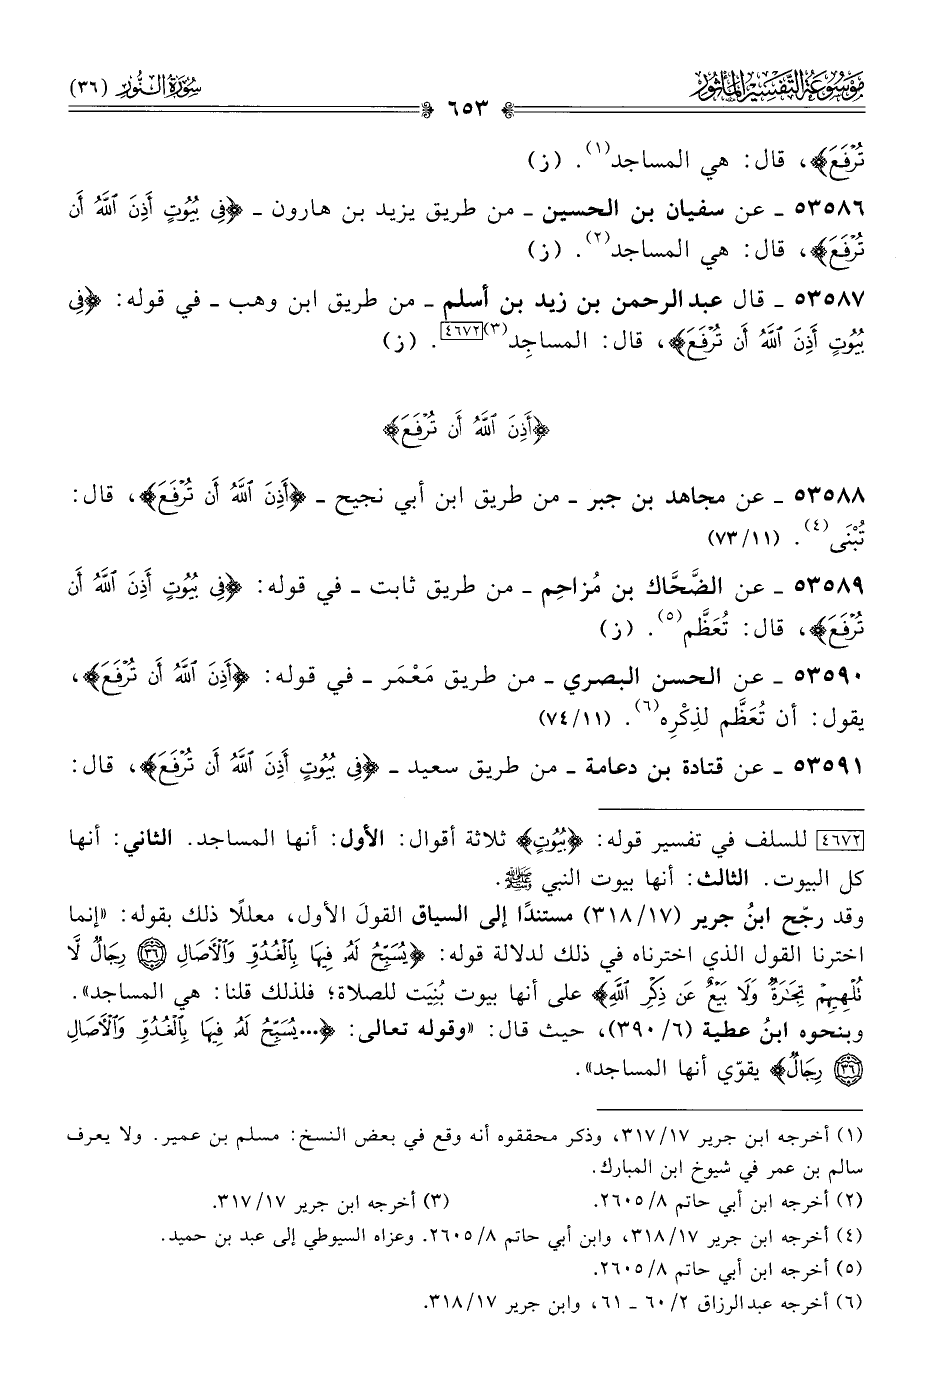 موسوعة التفسير المأثور
سورة النور (٣٦)
٦٥٣
تُرْفَعَ﴾، قال: هي المساجد(١). (ز)
٥٣٥٨٦ ـ عن سفيان بن الحسين ـ من طريق يزيد بن هارون ـ ﴿فِي بُيُوتٍ أَذِنَ ٱللَّهُ أَن
تُرْفَعَ﴾، قال: هي المساجد(٢). (ز)
٥٣٥٨٧ ـ قال عبد الرحمن بن زيد بن أسلم ـ من طريق ابن وهب ـ في قوله: ﴿فِي
بُيُوتٍ أَذِنَ ٱللَّهُ أَن تُرْفَعَ﴾، قال: المساجِد(٣)[٤٦٧٢]. (ز)
﴿أَذِنَ ٱللَّهُ أَن تُرْفَعَ﴾
٥٣٥٨٨ ـ عن مجاهد بن جبر ـ من طريق ابن أبي نجيح ـ ﴿أَذِنَ ٱللَّهُ أَن تُرْفَعَ﴾، قال:
تُبْنَى(٤). (٧٣/١١)
٥٣٥٨٩ ـ عن الضَّحَّاك بن مُزاحِم ـ من طريق ثابت ـ في قوله: ﴿فِي بُيُوتٍ أَذِنَ ٱللَّهُ أَن
تُرْفَعَ﴾، قال: تُعَظَّم(٥). (ز)
٥٣٥٩٠ ـ عن الحسن البصري ـ من طريق مَعْمَر ـ في قوله: ﴿أَذِنَ ٱللَّهُ أَن تُرْفَعَ﴾،
يقول: أن تُعَظَّم لذِكْرِه(٦). (٧٤/١١)
٥٣٥٩١ ـ عن قتادة بن دعامة ـ من طريق سعيد ـ ﴿فِي بُيُوتٍ أَذِنَ ٱللَّهُ أَن تُرْفَعَ﴾، قال:
[٤٦٧٢] للسلف في تفسير قوله: ﴿بُيُوتٍ﴾ ثلاثة أقوال: الأول: أنها المساجد. الثاني: أنها
كل البيوت. الثالث: أنها بيوت النبي ﷺ.
وقد رجّح ابنُ جرير (٣١٨/١٧) مستندًا إلى السياق القولَ الأول، معللًا ذلك بقوله: «إنما
اخترنا القول الذي اخترناه في ذلك لدلالة قوله: ﴿يُسَبِّحُ لَهُۥ فِيهَا بِٱلْغُدُوِّ وَٱلْأَصَالِ ۝٣٦ رِجَالٌ لَّا
تُلْهِيهِمْ تِجَٰرَةٌ وَلَا بَيْعٌ عَن ذِكْرِ ٱللَّهِ﴾ على أنها بيوت بُنِيَت للصلاة؛ فلذلك قلنا: هي المساجد».
وبنحوه ابنُ عطية (٣٩٠/٦)، حيث قال: «وقوله تعالى: ﴿...يُسَبِّحُ لَهُۥ فِيهَا بِٱلْغُدُوِّ وَٱلْأَصَالِ
۝٣٦ رِجَالٌ﴾ يقوّي أنها المساجد».
(١) أخرجه ابن جرير ٣١٧/١٧، وذكر محققوه أنه وقع في بعض النسخ: مسلم بن عمير. ولا يعرف
سالم بن عمر في شيوخ ابن المبارك.
(٢) أخرجه ابن أبي حاتم ٢٦٠٥/٨. (٣) أخرجه ابن جرير ٣١٧/١٧.
(٤) أخرجه ابن جرير ٣١٨/١٧، وابن أبي حاتم ٢٦٠٥/٨. وعزاه السيوطي إلى عبد بن حميد.
(٥) أخرجه ابن أبي حاتم ٢٦٠٥/٨.
(٦) أخرجه عبد الرزاق ٦٠/٢ ـ ٦١، وابن جرير ٣١٨/١٧.